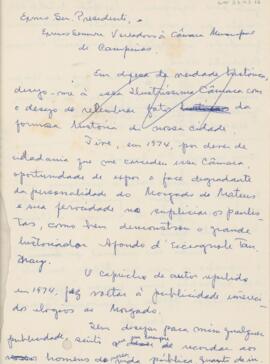 Exmo Snr. Presidente,
Exmos Senhores Vereadores à Câmara Municipal
de Campinas
Em defesa da verdade histórica,
dirijo-me à essa Ilustríssima Câmara com
o desejo de relembrar fatos da
formosa história de nossa cidade.
Tive, em 1974, por dever de
cidadania que me concedeu essa Câmara,
oportunidade de expor a face degradante
da personalidade do Morgado de Mateus
e sua ferocidade no supliciar os paulis-
tas, como bem demonstrou o grande
historiador Afonso d'Escragnole Tau-
nay.
O capricho de autor repelido
em 1974, faz voltar à publicidade
elogios ao Morgado.
Sem desejar para mim qualquer
publicidade, sinto de recordar aos
homens de pública